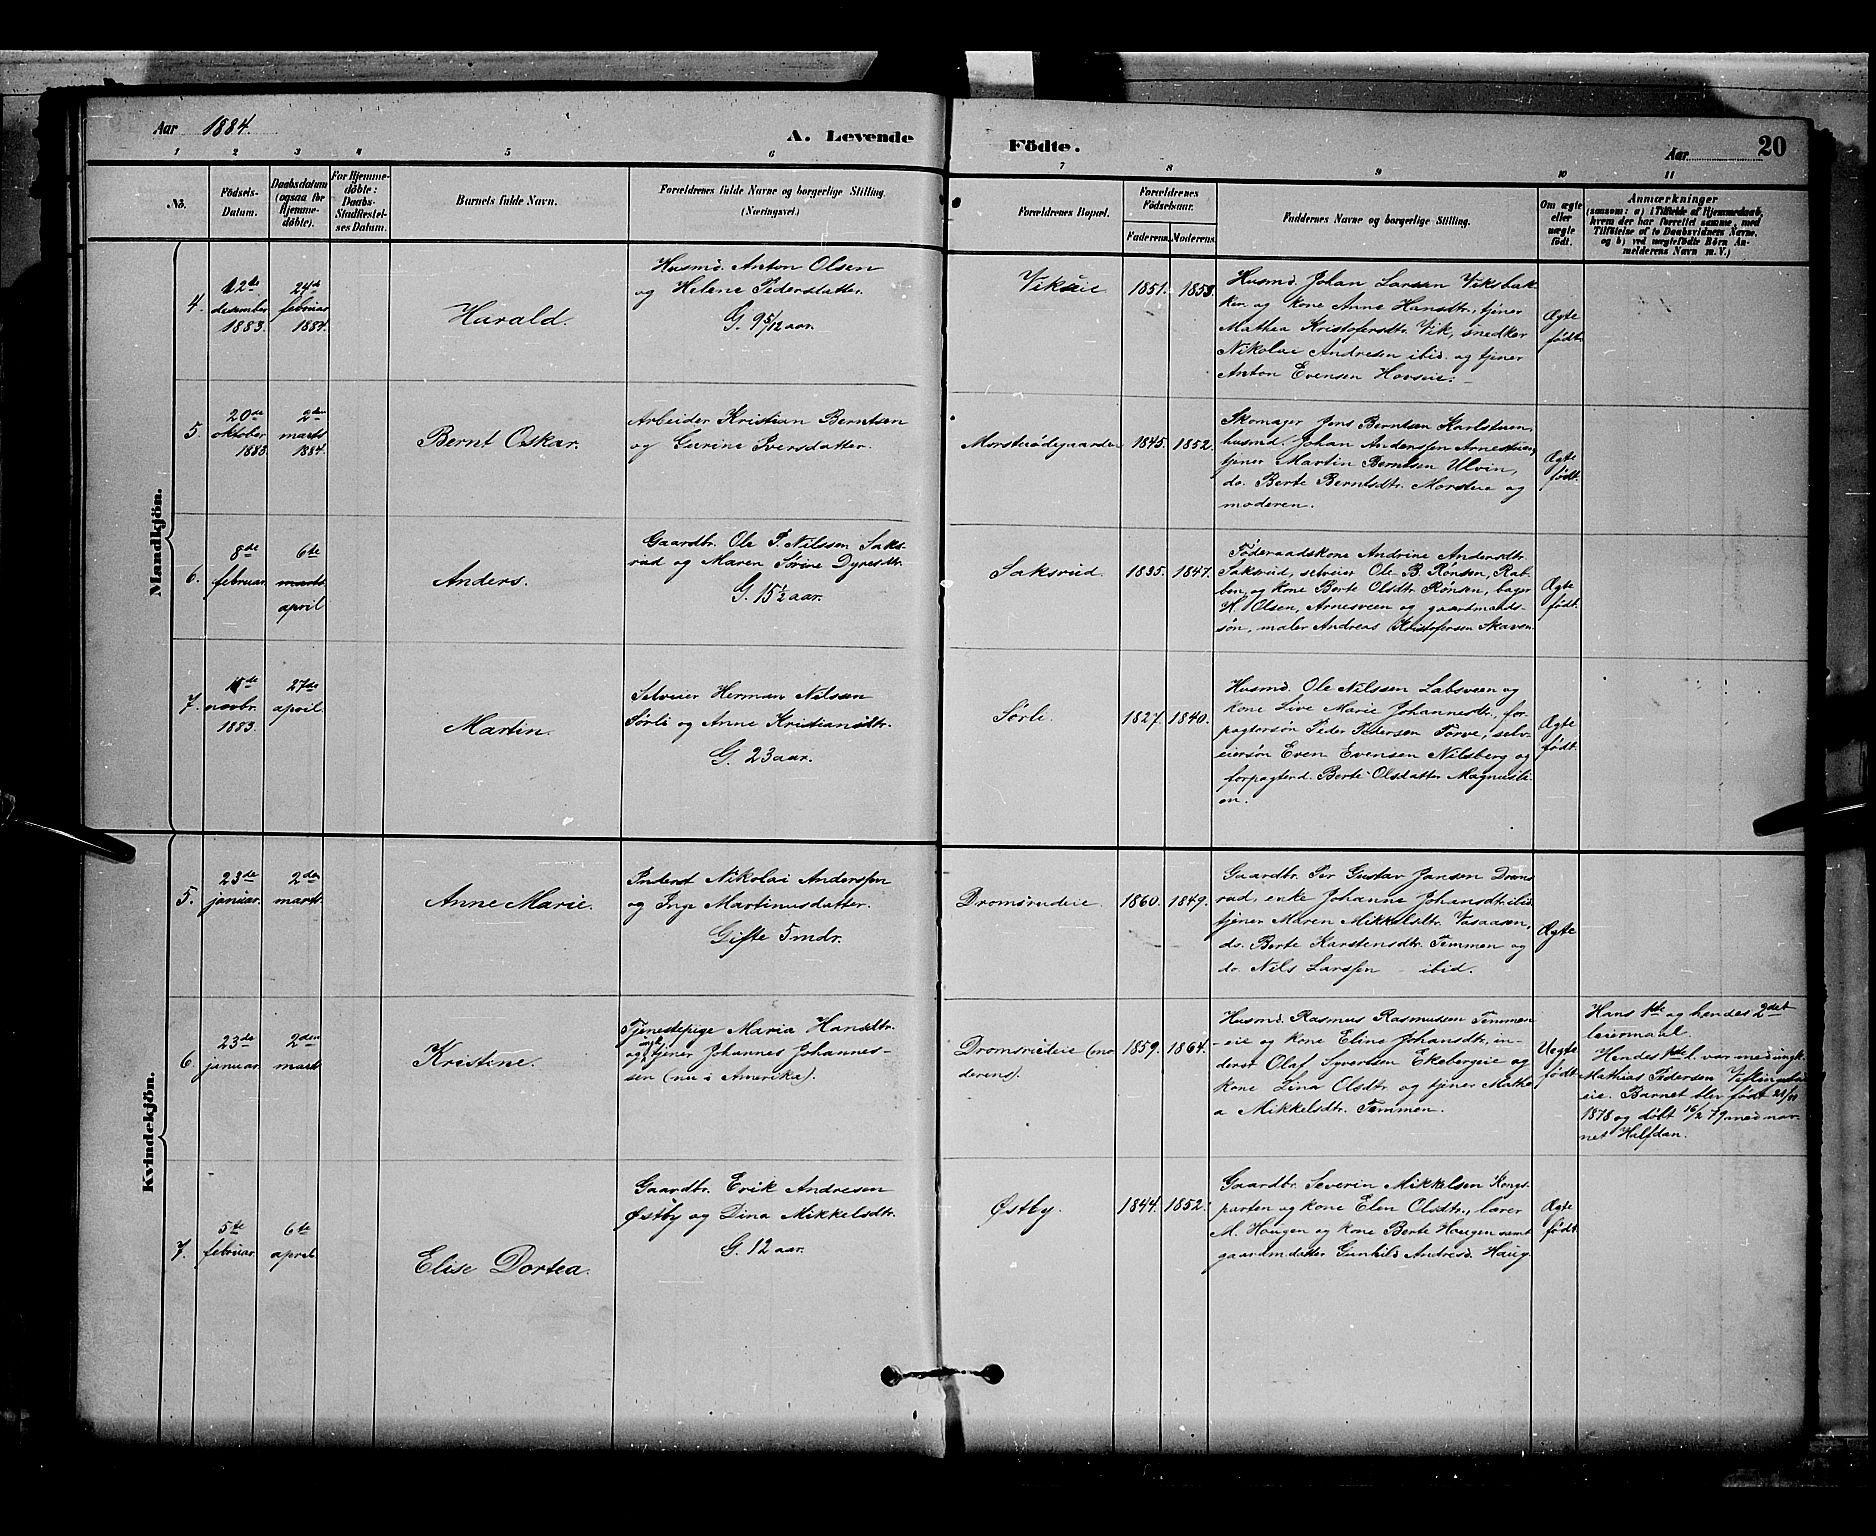 Aar 1884. A. Levende Födte. Aar 20
1 2 3 4 5 6 7 8 9 10 11
No.
Födsels-
Datum.
Daabsdatum
(ogsaa for
Hjemme-
döbte).
For Hjemme-
döbte:
Daabs-
Stadfæstel-
ses Datum.
Barnets fulde Navn.
Forældrenes fulde Navne og borgerlige Stilling.
(Næringsvei.)
Forældrenes Bopæl.
Forældrenes
Födselsaar.
Faderens. Moderens.
Faddernes Navne og borgerlige Stilling.
Om ægte
eller
uægte
födt.
Anmærkninger
(saasom: a) i Tilfælde af Hjemmedaab,
hvem der har forrettet samme, med
Tilföielse af to Daabsvidners Navne,
og b) ved uægtefödte Börn An-
melderens Navn m. V.)
Mandkjön.
4.
12te
desember
1883.
24de
februar
1884.
Harald.
Husmd. Anton Olsen
og Helene Pedersdatter.
G. 9 5/12 aar.
Vikseie
1851. 1853.
Husmd. Johan Larsen Viksbak-
ken og kone Anne Hansdtr., tjener
Mathea Kristofersdtr. Vik, snedker
Nikolai Andresen ibid. og tjener
Anton Evensen Hovseie.
Ægte
født.
5.
20de
oktober
1883
2den
marts
1884.
Bernt Oskar.
Arbeider Kristian Berntsen
og Gurine Iversdatter.
Morsteiødegaarden
1845. 1852.
Skomager Jens Berntsen Karlstuen,
husmd. Johan Anderssen Arnestuen,
tjener Martin Berntsen Ulvin,
do. Berte Berntsdtr. Morsteie og
moderen.
Ægte
født.
6.
8de
februar.
6te
marts
april
Anders.
Gaardbr. Ole P. Nilssen Saks-
rud og Maren Sørine Dyresdtr.
G. 15 1/2 aar.
Saksrud.
1835. 1847.
Føderaadskone Andrine Andersdtr.
Saksrud, selveier Ole B. Rønsen, Rab-
ben, og kone Berte Olsdtr. Rønsen, bager
H. Olsen, Arnesveen og gaardmands-
søn, maler Andreas Kristofersen Skaven.
Ægte
født.
7.
11te
novbr.
1883.
27de
april.
Martin.
Selveier Herman Nilssen
Sørli og Anne Kristiansdtr.
G. 23 aar.
Sørli.
1827. 1840.
Husmd. Ole Nilssen Labsveen og
kone Live Marie Johannesdtr., for-
pagtersøn Peder Pedersen Tørve, selv-
eiersøn Even Evensen Nilsberg og
forpagterd. Berte Olsdatter Magnusli-
en.
Ægte
født.
Kvindekjön.
5.
23de
januar.
2den
marts.
Anne Marie.
Inderst Nikolai Anderssen
og Inge Martinusdatter.
Gifte 5 mdr.
Dromsrudeie.
1860. 1849.
Gaardbr. Per Gustav Jansen Droms-
rud, enke Johanne Johansdtr. ibid.
tjener Maren Mikkelsdtr. Vasaasen,
do. Berte Karstensdtr. Temmen og
do. Nils Larssen – ibid.
Ægte
6.
23de
januar.
2den
marts
Kristine.
Tjenestepige Maria Hansdtr.
og ungk. tjener Johannes Johannes-
sen (nu i Amerika).
Dromsrudeie (mo
derens).
1859. 1864.
Husmd. Rasmus Rasmusen Temmen-
eie og kone Eline Johansdtr., in-
derst Olaf Syvertsen Ekebergeie og
kone Lina Olsdtr. og tjener Mathe-
a Mikkelsdtr. Temmen.
Uegte
født.
Hans 1ste og hendes 2det
leiermaal.
Hendes 1ste l. var med ungk.
Mathias Pedersen
eie. Barnet blev født
1878 og døbt 16/2 79 med nav-
net Halfdan.
7.
5te
februar.
6te
april.
Elise Dortea.
Gaardbr. Erik Andresen
Østby og Dina Mikkelsdtr.
G. 12 aar.
Østby.
1844. 1852.
Gaardbr. Severin Mikkelsen Kongs-
parten og kone Elen Olsdtr., lærer
M. Haugen og kone Berte Haugen samt
gaardm.datter Gunhild Andresd. Haug.
Ægte
født.